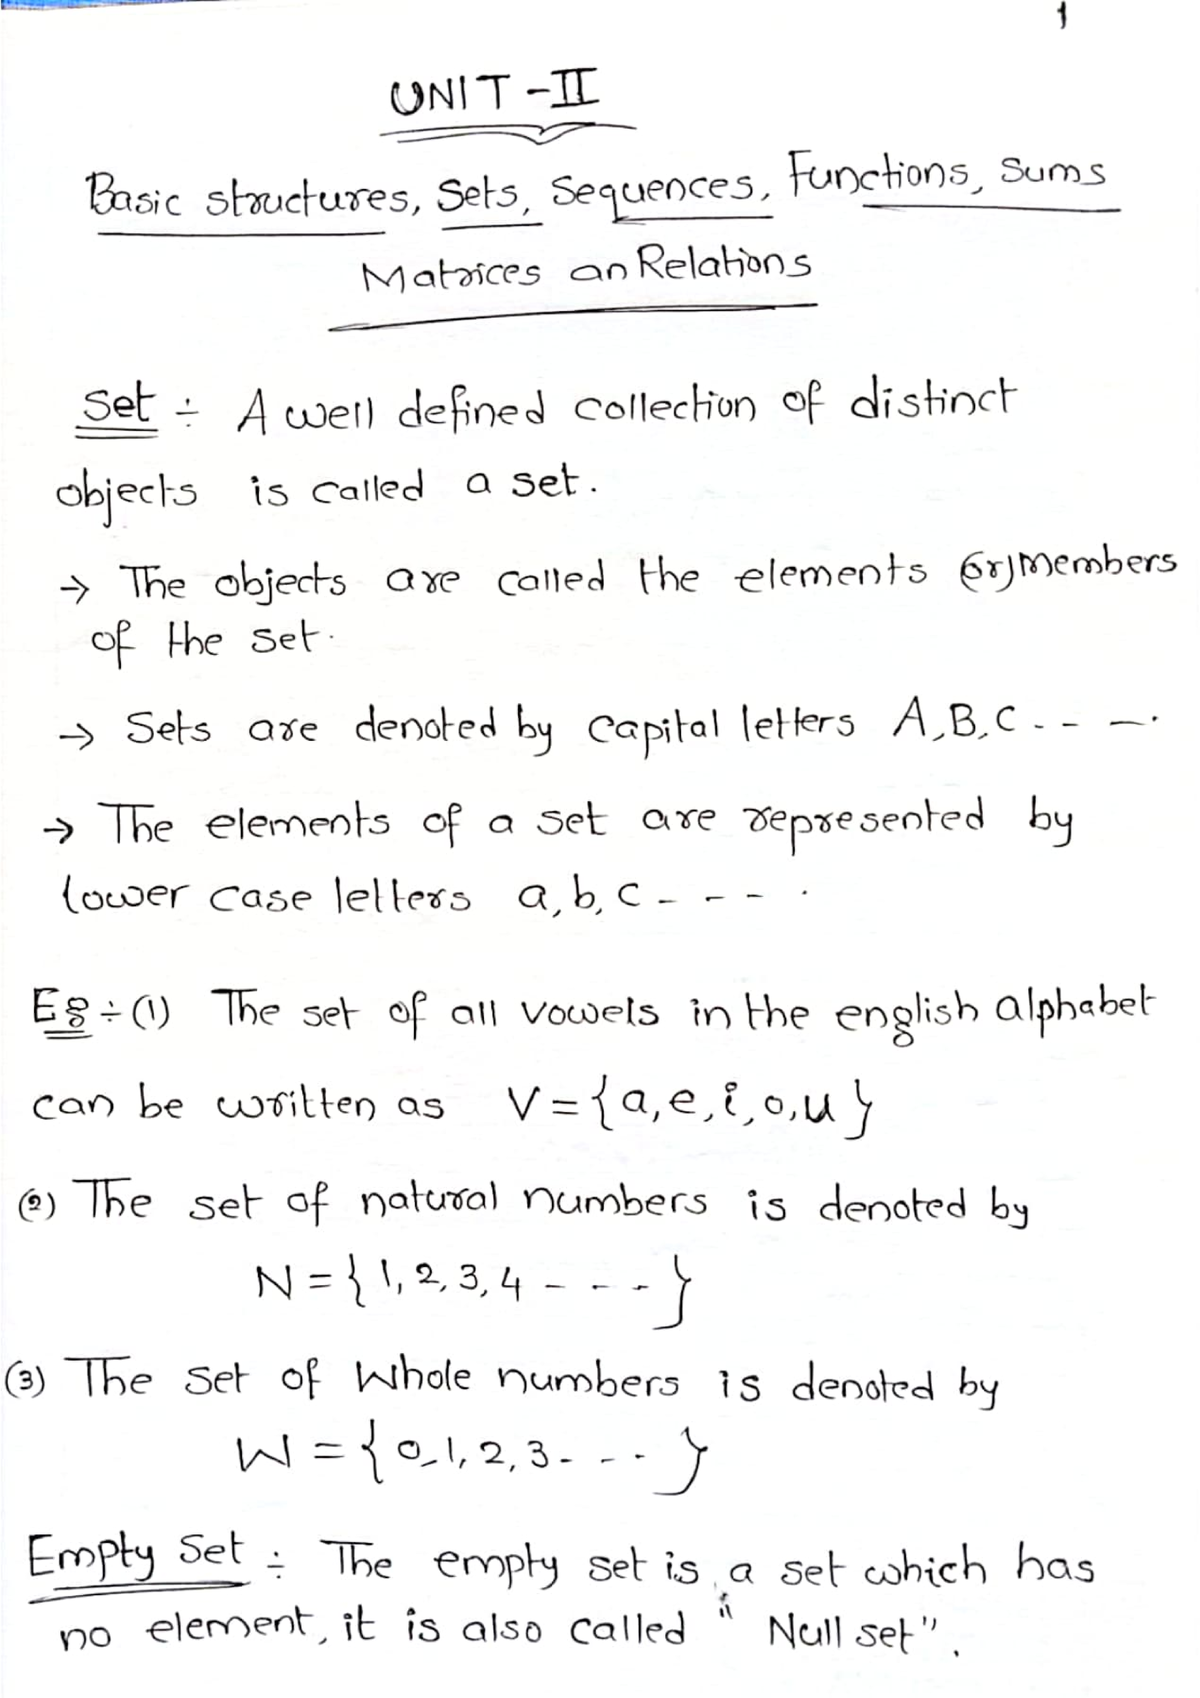 1
UNIT-II
Basic structures, Sets, Sequences, Functions, Sums
Matrices an Relations
Set ÷ A well defined collection of distinct
objects is called a set.
→ The objects are called the elements (or) members
of the set.
→ Sets are denoted by capital letters A, B, C - - -.
→ The elements of a set are represented by
lower case letters a, b, c - - - .
Eg ÷ (1) The set of all vowels in the english alphabet
can be written as V = {a, e, i, o, u}
(2) The set of natural numbers is denoted by
N = { 1, 2, 3, 4 - - - - }
(3) The set of Whole numbers is denoted by
W = { 0, 1, 2, 3 - - - - }
Empty Set ÷ The empty set is a set which has
no element, it is also called " Null set".